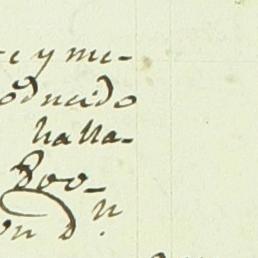 te y me-
oducido
halla-
Boo-
on D.n